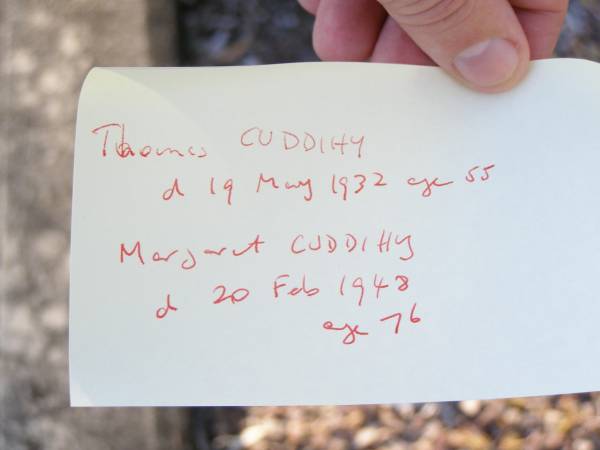 Thomas CUDDIHY
d 19 May 1932 age 55
Margaret CUDDIHY
d 20 Feb 1948
age 76